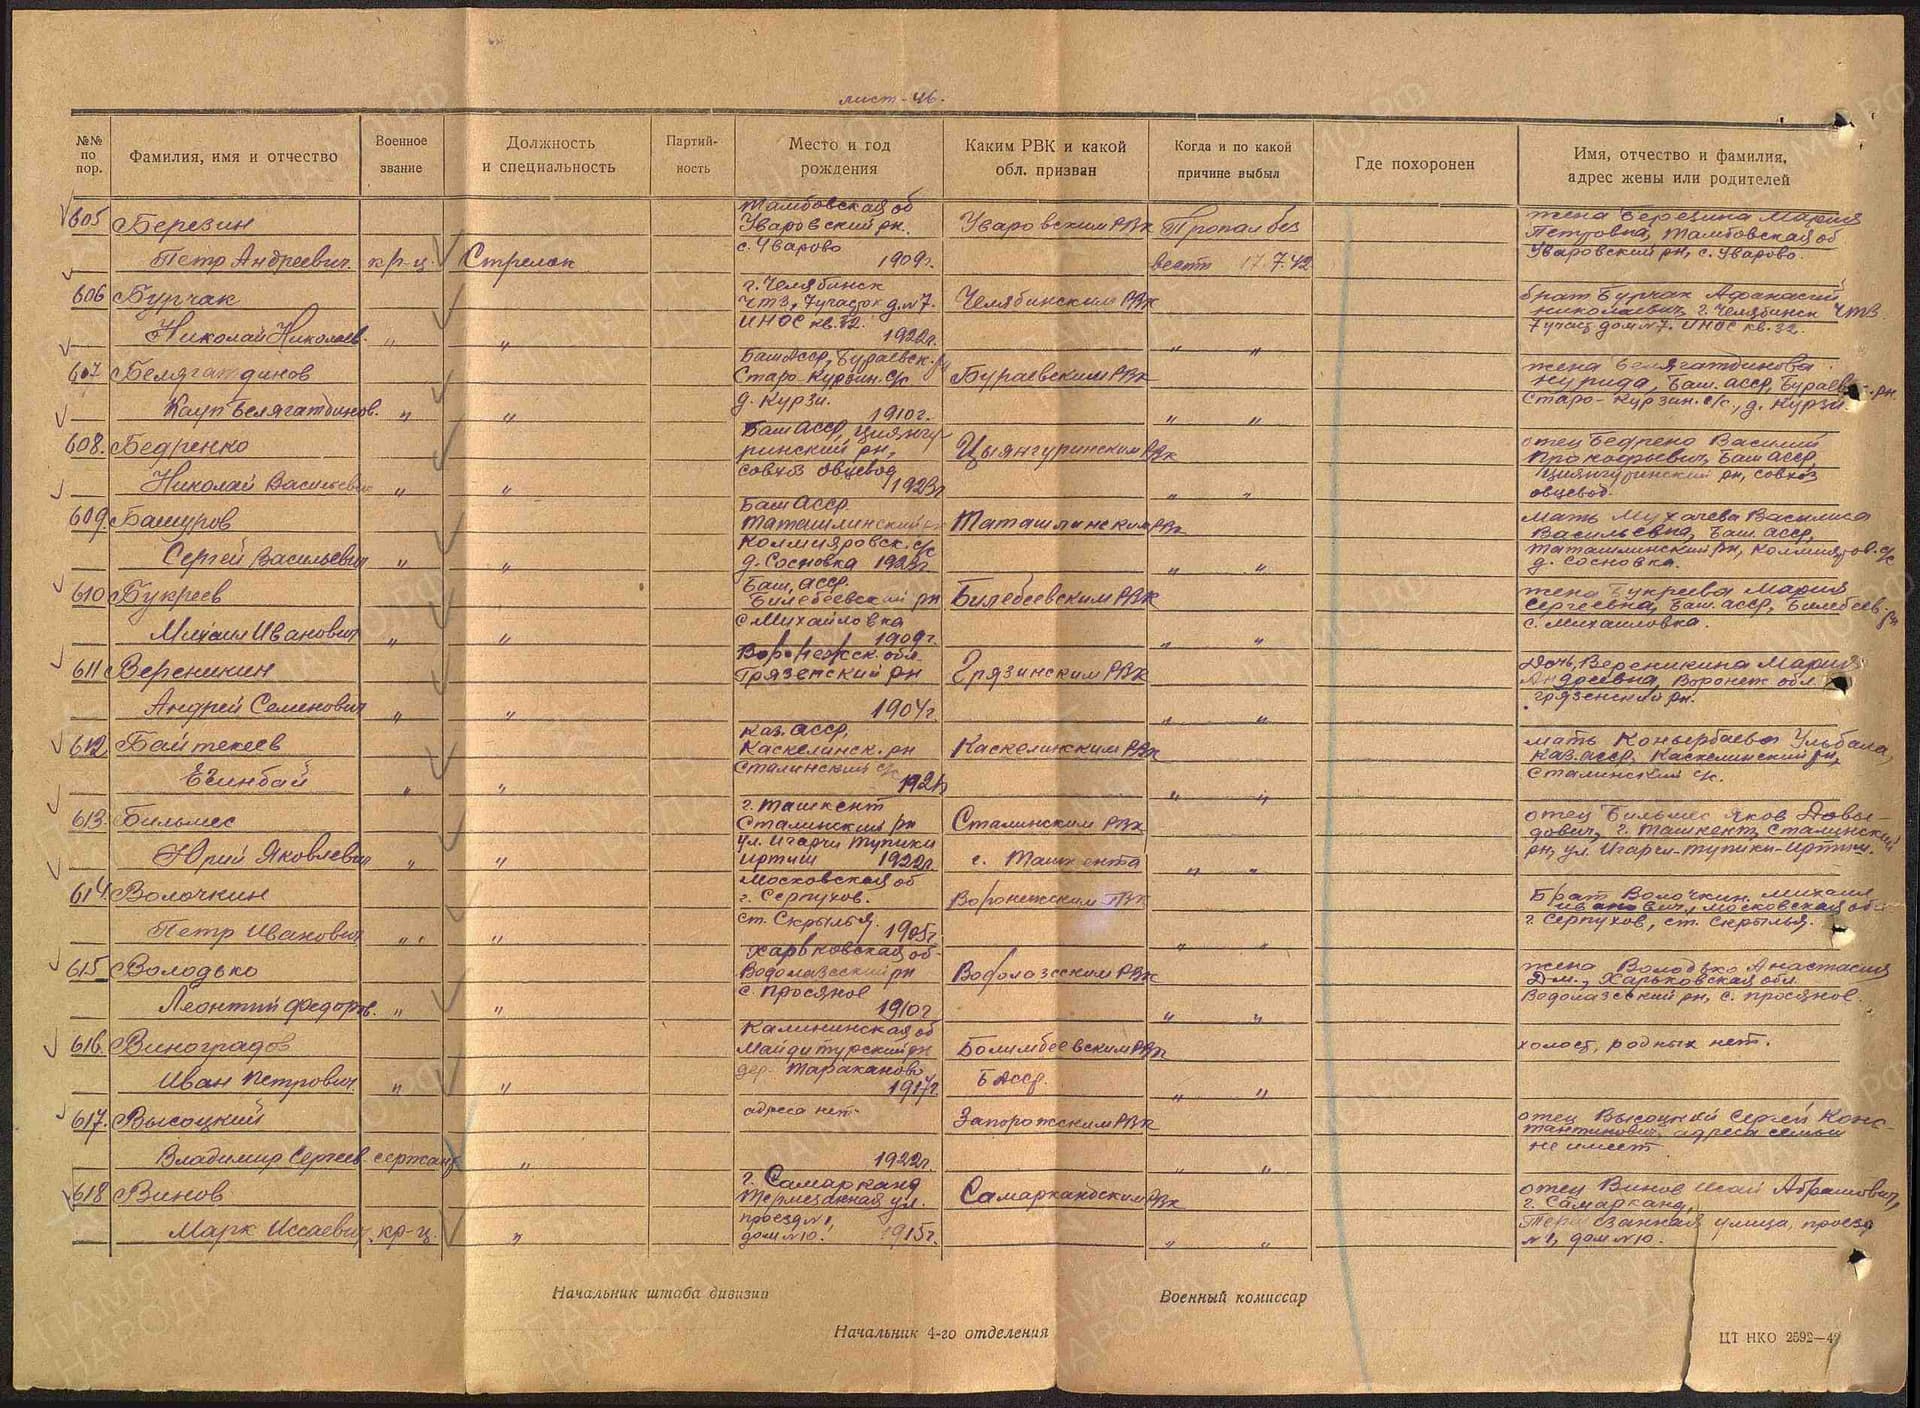 лист-46.
№№ по пор.
Фамилия, имя и отчество
Военное звание
Должность и специальность
Партий-ность
Место и год рождения
Каким РВК и какой обл. призван
Когда и по какой причине выбыл
Где похоронен
Имя, отчество и фамилия, адрес жены или родителей
605 Березин
Петр Андреевич. кр-ц. Стрелок
Тамбовская об
Уваровский рн.
с. Уварово
1909г.
Уваровским РВК
Пропал без
вест 17.7.42
жена Березина Мария
Петровна, Тамбовская об
Уваровский рн, с. Уварово.
606 Бурчак
Николай Николаев. " "
г. Челябинск
ЧТЗ, 7 участок д.№7.
ИНОС кв. 32.
1922г.
Челябинским РВК
" "
брат Бурчак Афанасий
николаевич, г. Челябинск ЧТЗ.
7 участ. дом №7. ИНОС кв. 32.
607 Белягатдинов
Кауп Белягатдинов. " "
Баш Асср, Бураевск. рн
Старо-Курзин. с/с
д. Курзи.
1910г.
Бураевским РВК
" "
жена Белягатдинова
нурида, Баш. асср, Бураевск. рн
Старо-Курзин. с/с, д. Курзи.
608. Бедренко
Николай Васильевич " "
Баш АССР, Циянгу
ринский рн,
совхоз овцевод
1923г
Цыянгуринским РВк
" "
отец Бедрено Василий
Прокофьевич, Баш АССР,
Циянгуринский рн, совхоз
овцевод.
609. Башуров
Сергей Васильевич " "
Баш АССР.
Таташлинский рн
Колмияровск. с/с
д. Сосновка 1923г.
Таташлинским РВк
" "
мать Мухачева Василиса
Васильевна, Баш. асср,
Таташлинский рн, Колмияров. с/с
д. Сосновка.
610 Букреев
Михаил Иванович " "
Баш, асср.
Билебеевский рн
с Михайловка
1909г.
Билебеевским РВК
" "
жена Букреева Мария
Сергеевна, Баш. асср, Билебеев. рн
с. Михаиловка.
611 Вереникин
Андрей Семенович " "
Воронежск. обл
Грязенский рн
1904г.
Грязинским РВК
" "
Дочь, Вереникина Мария
Андреевна, Воронеж обл.
Грязенский рн.
612 Байтекеев
Егинбай " "
Каз. асср,
Каскелинск. рн
Сталинский с/с
Каскелинским РВк
" "
мать Коньербаева Ульбала,
Каз. асср, Каскелинский рн,
Сталинский с/с.
613. Бильмес
Юрий Яковлевич " "
г. Ташкент
Сталинский рн
ул. Игарчи тупики
иртиш 1922г.
Сталинским РВк
г. Ташкента
" "
отец Бильмес Яков Давы-
дович, г. Ташкент, Сталинский
рн, ул. Игарчи-тупики-иртиш.
614. Волочкин
Петр Иванович " "
Московская об
г. Серпухов.
ст. Скрылья.
1905г.
Воронежским РВК
" "
Брат Волочкин михаил
иванович, московская об
г Серпухов, ст. Скрылья.
615 Володько
Леонтий Федоров. " "
Харьковская об-
Водолазсский рн
с. Просяное
1910г
Водолазсским РВк
" "
жена Володько Анастасия
Дм., Харьковская обл.
Водолазсский рн, с. просяное.
616. Виноградов
Иван Петрович " "
Калининская об
Майдитурский рн
дер. Тараканово
1917г.
Болимбеевским РВк
Б Асср.
" "
холост, родных нет.
617. Высоцкий
Владимир Сергеев. сержант "
адреса нет.
1922г.
Запорожским РВК
" "
отец Высоцкий Сергей Конс-
тантинович, адреса семьи
не имеет
618 Винов
Марк Иссаевич. кр-ц. "
г. Самарканд
Термезанная ул.
проезд №1,
дом №10.
1915г.
Самаркандским РВк
" "
отец Винов Исай Абрамович,
г. Самарканд,
улица, проезд
№1, дом №10.
Начальник штаба дивизии
Военный комиссар
Начальник 4-го отделения
ЦТ НКО 2592—42
ПАМЯТЬ НАРОДА
ПАМЯТЬ НАРОДА